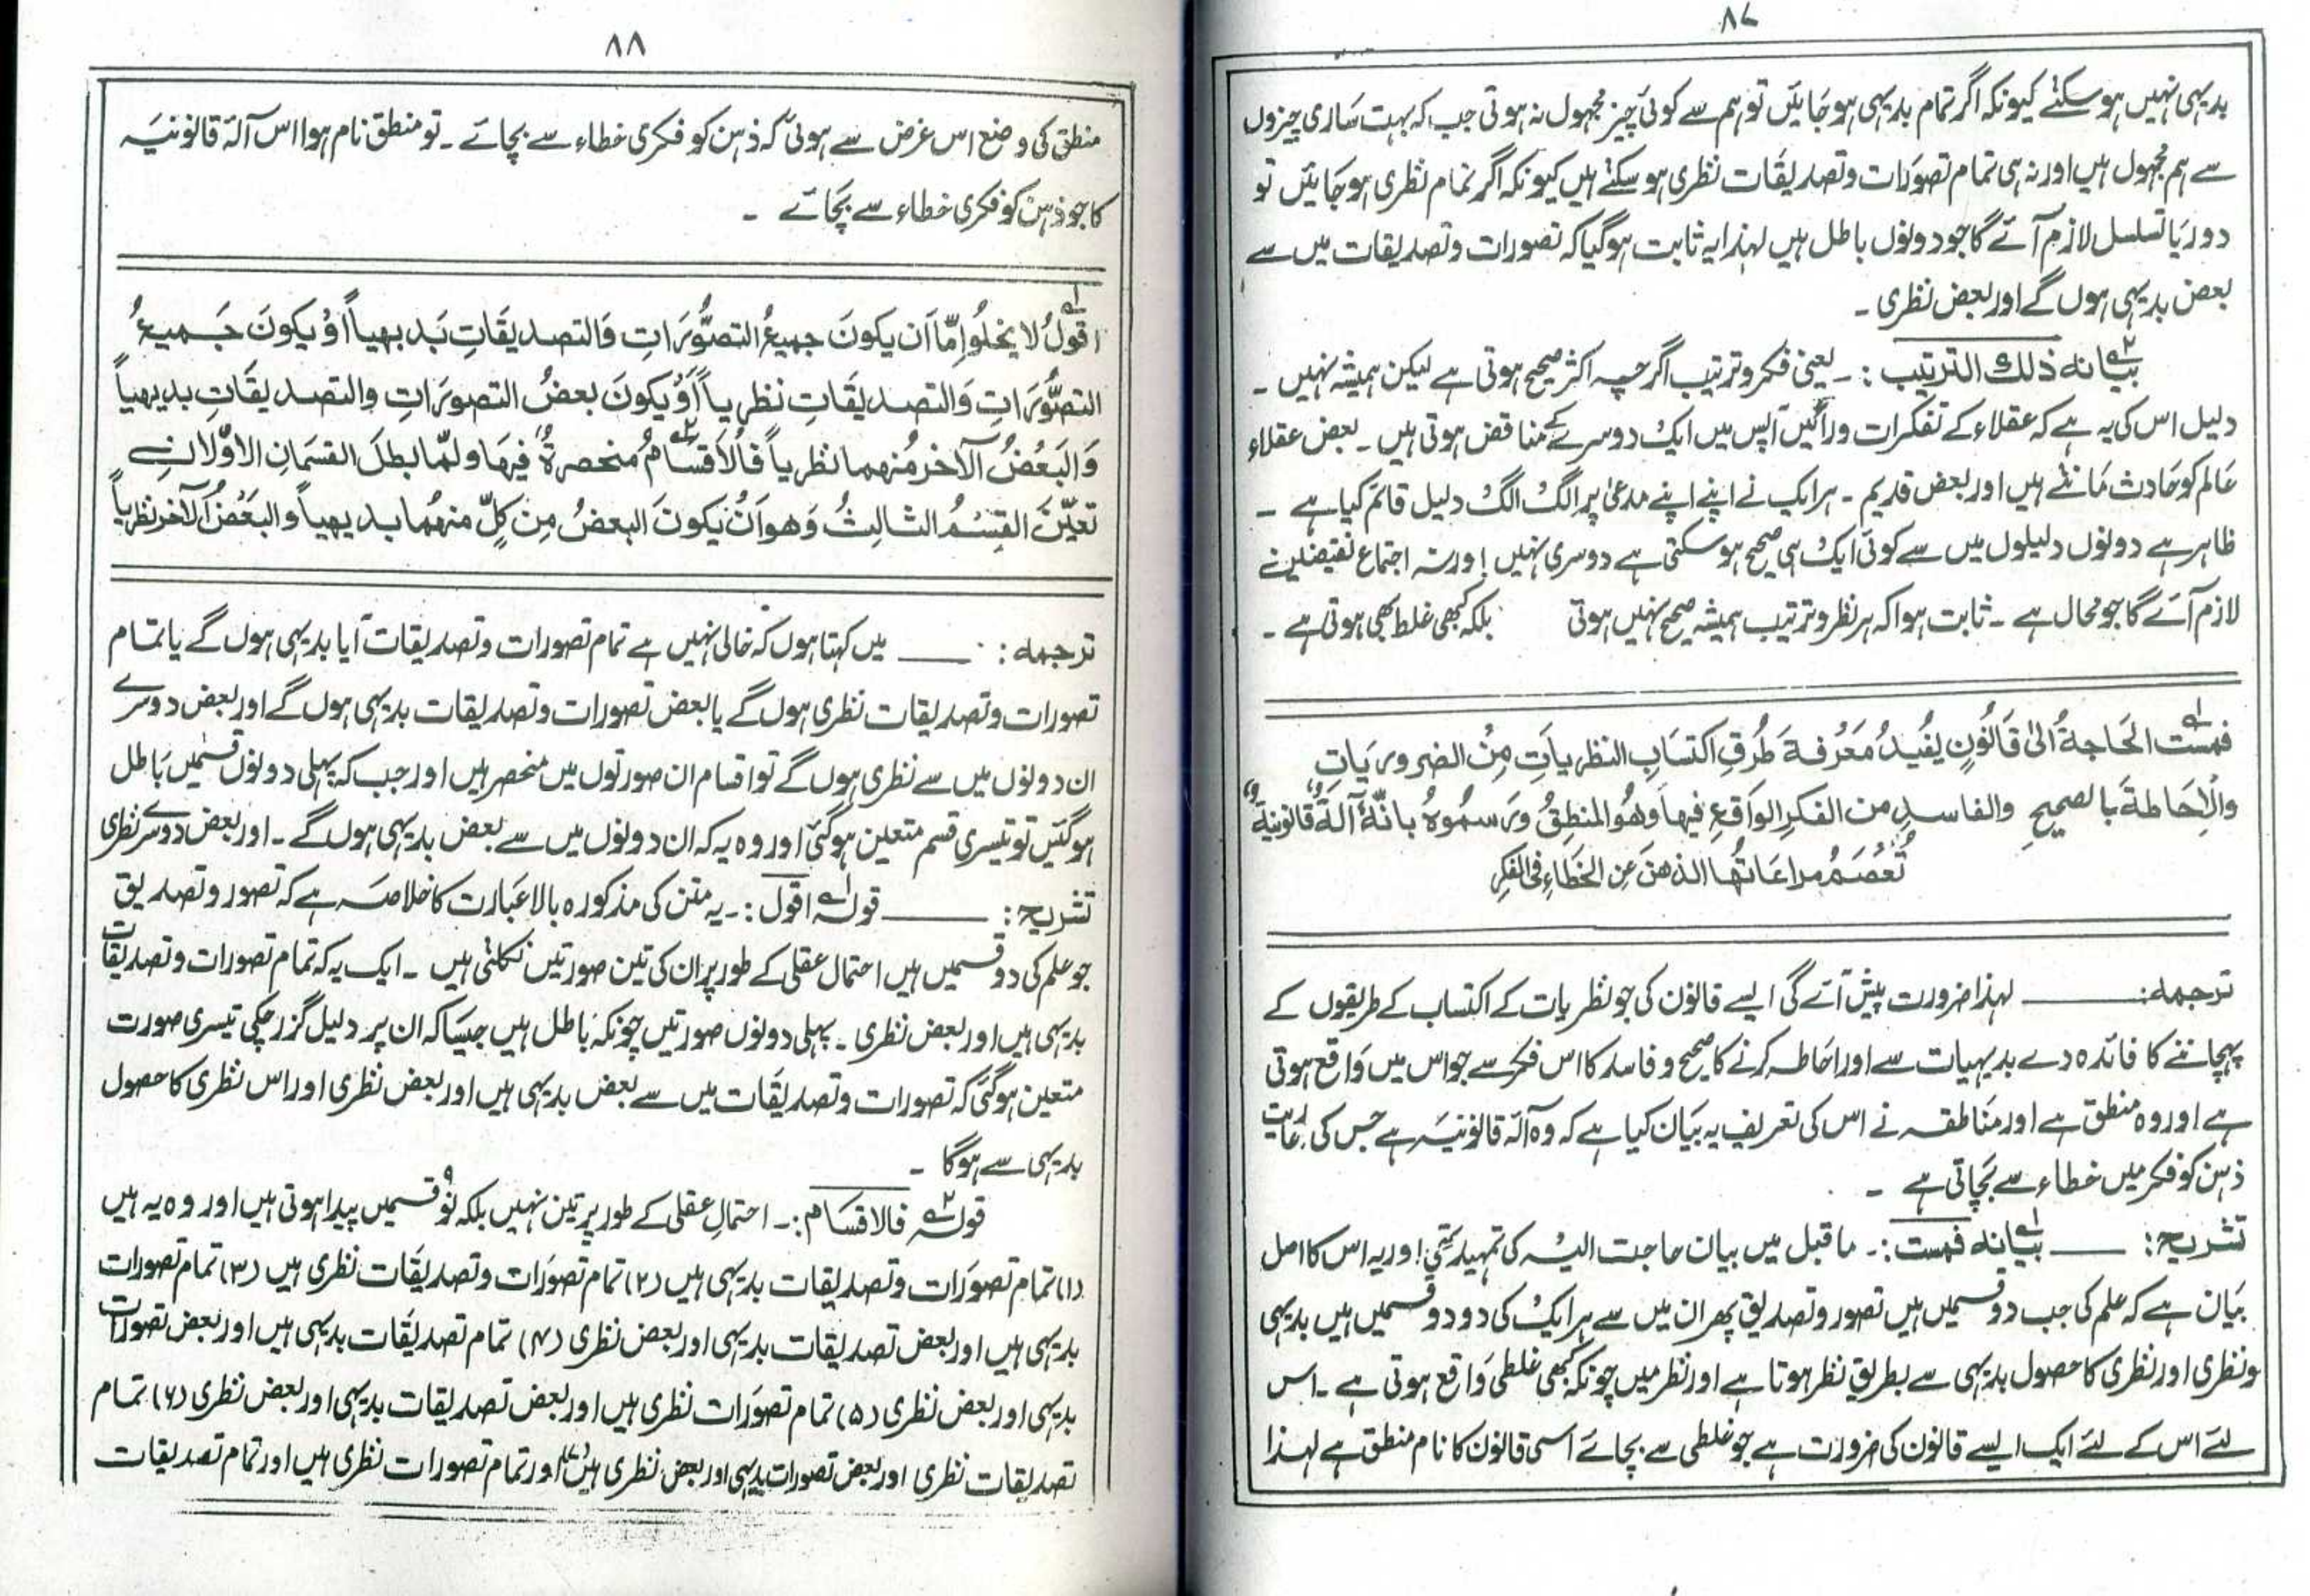 ۸۷
بدیہی نہیں ہوسکتے کیونکہ اگر تمام بدیہی ہوجائیں تو ہم سے کوئی چیز مجہول نہ ہوتی جب کہ بہت ساری چیزوں
سے ہم مجہول ہیں اور نہ ہی تمام تصورات وتصدیقات نظری ہوسکتے ہیں کیونکہ اگر تمام نظری ہوجائیں تو
دور یا تسلسل لازم آئے گا جو دونوں باطل ہیں لہذا یہ ثابت ہوگیا کہ تصورات وتصدیقات میں سے
بعض بدیہی ہوں گے اور بعض نظری ۔
بیانہ ۲ ذلك الترتیب :۔ یعنی فکر وترتیب اگرچہ اکثر صحیح ہوتی ہے لیکن ہمیشہ نہیں ۔
دلیل اس کی یہ ہے کہ عقلاء کے تفکرات ورائیں آپس میں ایک دوسرے کے مناقض ہوتی ہیں ۔ بعض عقلاء
عالم کو حادث مانتے ہیں اور بعض قدیم ۔ ہر ایک نے اپنے اپنے مدعیٰ پر الگ الگ دلیل قائم کیا ہے ۔
ظاہر ہے دونوں دلیلوں میں سے کوئی ایک ہی صحیح ہوسکتی ہے دوسری نہیں ! ورنہ اجتماع نقیضین
لازم آئے گا جو محال ہے ۔ ثابت ہوا کہ ہر نظر وترتیب ہمیشہ صحیح نہیں ہوتی بلکہ کبھی غلط بھی ہوتی ہے ۔
فمست ۱ الحَاجةُ الیٰ قَانُونٍ یفیدُ مَعْرفةَ طُرُقِ اکتسَابِ النظریاتِ مِنْ الضروریَاتِ
والْاِحَاطةَ بالصحیحِ والفاسدِ من الفکرِ الوَاقعِ فیهَا وَهُو المنطِقُ وَرَسمُوهُ بانّهٗ آلةٌ قانونیةٌ
تَعْصَمُ مراعَاتُها الذهنَ عنِ الخَطَاءِ فی الفکرِ
ترجمه: ــــــ لہذا ضرورت پیش آئے گی ایسے قانون کی جو نظریات کے اکتساب کے طریقوں کے
پہچاننے کا فائدہ دے بدیہیات سے اور احاطہ کرنے کا صحیح و فاسد کا اس فکر سے جو اس میں واقع ہوتی
ہے اور وہ منطق ہے اور مناطقہ نے اس کی تعریف یہ بیان کیا ہے کہ وہ آلۂ قانونیہ ہے جس کی رعایت
ذہن کو فکر میں خطاء سے بچاتی ہے ۔
تشریح: ــــــ بیانہ ۱ فمست :۔ ماقبل میں بیان حاجت الیہ کی تمہید تھی! اور یہ اس کا اصل
بیان ہے کہ علم کی جب دو قسمیں ہیں تصور وتصدیق پھر ان میں سے ہر ایک کی دو دو قسمیں ہیں بدیہی
ونظری اور نظری کا حصول بدیہی سے بطریق نظر ہوتا ہے اور نظر میں چونکہ کبھی غلطی واقع ہوتی ہے ۔ اس
لئے اس کے لئے ایک ایسے قانون کی ضرورت ہے جو غلطی سے بچائے اسی قانون کا نام منطق ہے لہذا
۸۸
منطق کی وضع اس غرض سے ہوئی کہ ذہن کو فکری خطاء سے بچائے ۔ تو منطق نام ہوا اس آلۂ قانونیہ
کا جو ذہن کو فکری خطاء سے بچائے ۔
اقولُ ۱ لا یخلُو اِمّا اَن یکونَ جمیعُ التصوُّرَاتِ وَالتصدیقَاتِ بَدیهیاً اَوْ یکونَ جَمیعُ
التصوُّرَاتِ وَالتصدیقَاتِ نظریاً اَوْ یکونَ بعضُ التصورَاتِ والتصدیقَاتِ بدیهیاً
وَالبَعْضُ الآخر مُنهما نظریاً فَالْاَقسَامُ ۲ مُنحصرةٌ فیهَا ولمّا بطلَ القسمَانِ الاوّلانِ
تعیّنَ القِسْمُ الثالِثُ وَهوَ اَنْ یکونَ البعضُ مِن کلٍّ منهُما بدیهیاً والبَعْضُ الآخر نظریاً
ترجمه: ــــــ میں کہتا ہوں کہ خالی نہیں ہے تمام تصورات وتصدیقات آیا بدیہی ہوں گے یا تمام
تصورات وتصدیقات نظری ہوں گے یا بعض تصورات وتصدیقات بدیہی ہوں گے اور بعض دوسرے
ان دونوں میں سے نظری ہوں گے تو اقسام ان صورتوں میں منحصر ہیں اور جب کہ پہلی دونوں قسمیں باطل
ہوگئیں تو تیسری قسم متعین ہوگئی اور وہ یہ کہ ان دونوں میں سے بعض بدیہی ہوں گے ۔ اور بعض دوسرے نظری
تشریح: ــــــ قولہ ۱ اقول :۔ یہ متن کی مذکورہ بالا عبارت کا خلاصہ ہے کہ تصور وتصدیق
جو علم کی دو قسمیں ہیں احتمال عقلی کے طور پر ان کی تین صورتیں نکلتی ہیں ۔ ایک یہ کہ تمام تصورات وتصدیقات
بدیہی ہیں اور بعض نظری ۔ پہلی دونوں صورتیں چونکہ باطل ہیں جیسا کہ ان پر دلیل گزر چکی تیسری صورت
متعین ہوگئی کہ تصورات وتصدیقات میں سے بعض بدیہی ہیں اور بعض نظری اور اس نظری کا حصول
بدیہی سے ہوگا ۔
قولہ ۲ فالاقسام :۔ احتمال عقلی کے طور پر تین نہیں بلکہ نو قسمیں پیدا ہوتی ہیں اور وہ یہ ہیں
(۱) تمام تصورات وتصدیقات بدیہی ہیں (۲) تمام تصورات وتصدیقات نظری ہیں (۳) تمام تصورات
بدیہی ہیں اور بعض تصدیقات بدیہی اور بعض نظری (۴) تمام تصدیقات بدیہی ہیں اور بعض تصورات
بدیہی اور بعض نظری (۵) تمام تصورات نظری ہیں اور بعض تصدیقات بدیہی اور بعض نظری (۶) تمام
تصدیقات نظری اور بعض تصورات بدیہی اور بعض نظری ہیں اور تمام تصورات نظری ہیں اور تمام تصدیقات